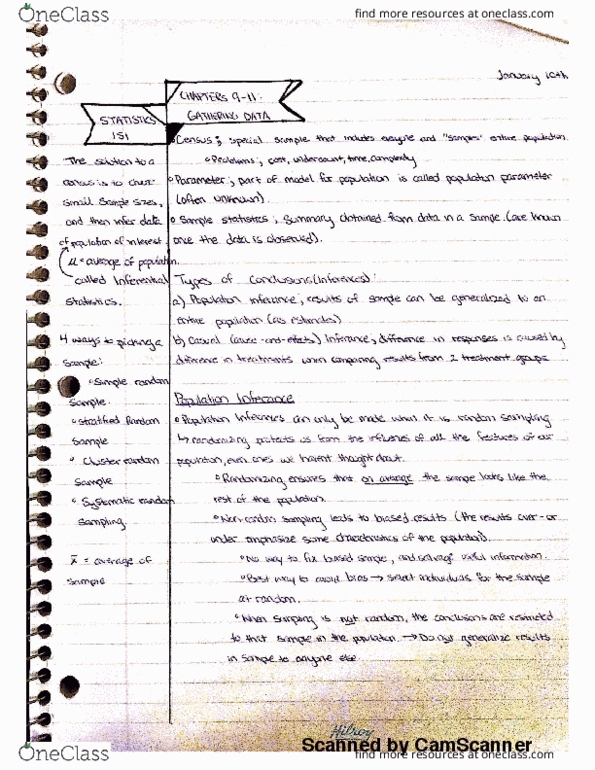 OneClass
find more resources at oneclass.com
January 10th
CHAPTERS 9-11:
GATHERING DATA
STATISTICS
151
The solution to a
census is to chose
small sample sizes,
and then infer data
of population of interest
μ = average of population.
called Inferential
Statistics.
4 ways to picking a
sample:
Simple random
sample.
Stratified Random
Sample
Cluster random
Sample
Systematic random
sampling.
x̄ = average of
sample
Census; special sample that includes everyone and "samples" entire population
Problems; cost, undercount, time, complexity
Parameter; part of model for population is called population parameter
(often unknown)
Sample statistics; Summary obtained from data in a sample. (are known
once the data is observed).
Types of Conclusions (Inferences):
a) Population inference; results of sample can be generalized to an
entire population (as estimates)
b) Casual (cause-and-effects) Inference; difference in responses is caused by
difference in treatments when comparing results from 2 treatment groups
Population Inference
Population Inferences can only be made what it is random sampling
↳ randomizing protects us from the influences of all the features of our
population, even ones we haven't thought about.
Randomizing ensures that on average the sample looks like the
rest of the population.
Non-random sampling leads to biased results (the results over- or
under emphasize some characteristics of the population).
No way to fix biased sample, and salvage useful information.
Best way to avoid bias → select individuals for the sample
at random.
When sampling is not random, the conclusions are restricted
to that sample in the population. → Do not generalize results
in sample to anyone else.
Hilroy
Scanned by CamScanner
OneClass
find more resources at oneclass.com